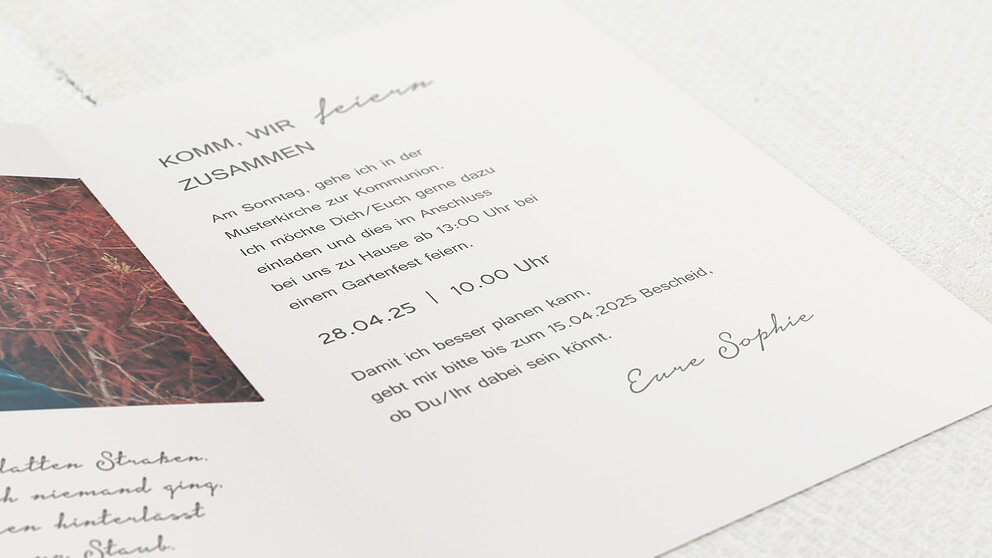 KOMM, WIR feiern
ZUSAMMEN
Am Sonntag, gehe ich in der
Musterkirche zur Kommunion.
Ich möchte Dich/Euch gerne dazu
einladen und dies im Anschluss
bei uns zu Hause ab 13:00 Uhr bei
einem Gartenfest feiern.
28.04.25 | 10.00 Uhr
Damit ich besser planen kann,
gebt mir bitte bis zum 15.04.2025 Bescheid,
ob Du/Ihr dabei sein könnt.
Eure Sophie
latten Straßen.
h niemand ging.
en hinterlässt
Staub.